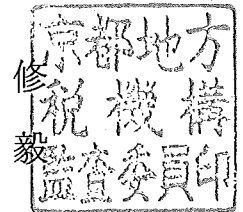 京都地方
税機構
監査委員印
修
毅